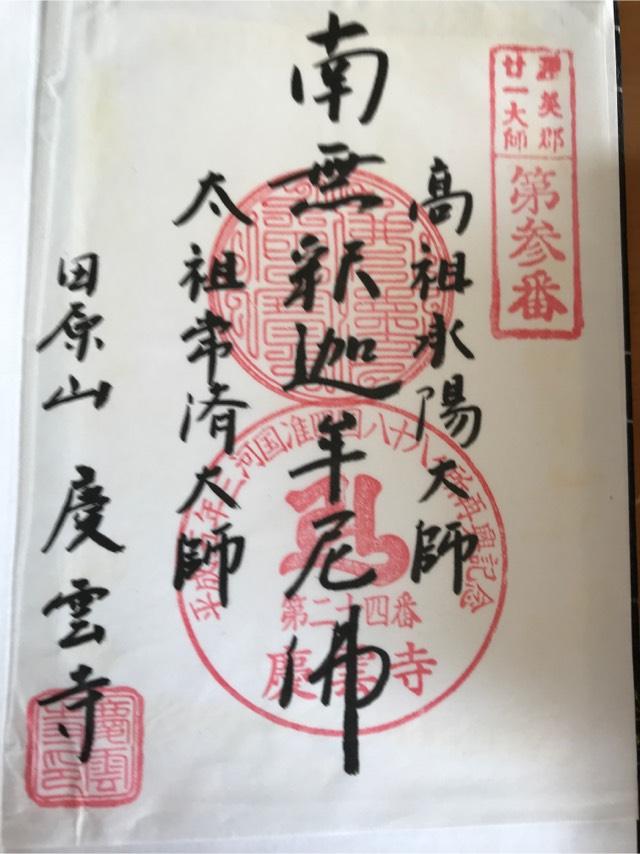 渥美郡
廿一大師
第参番
高祖承陽大師
南無釈迦牟尼佛
太祖常済大師
三河国准四国八十八
再興記念
第二十四番
慶雲寺
田原山 慶雲寺
慶雲
寺印